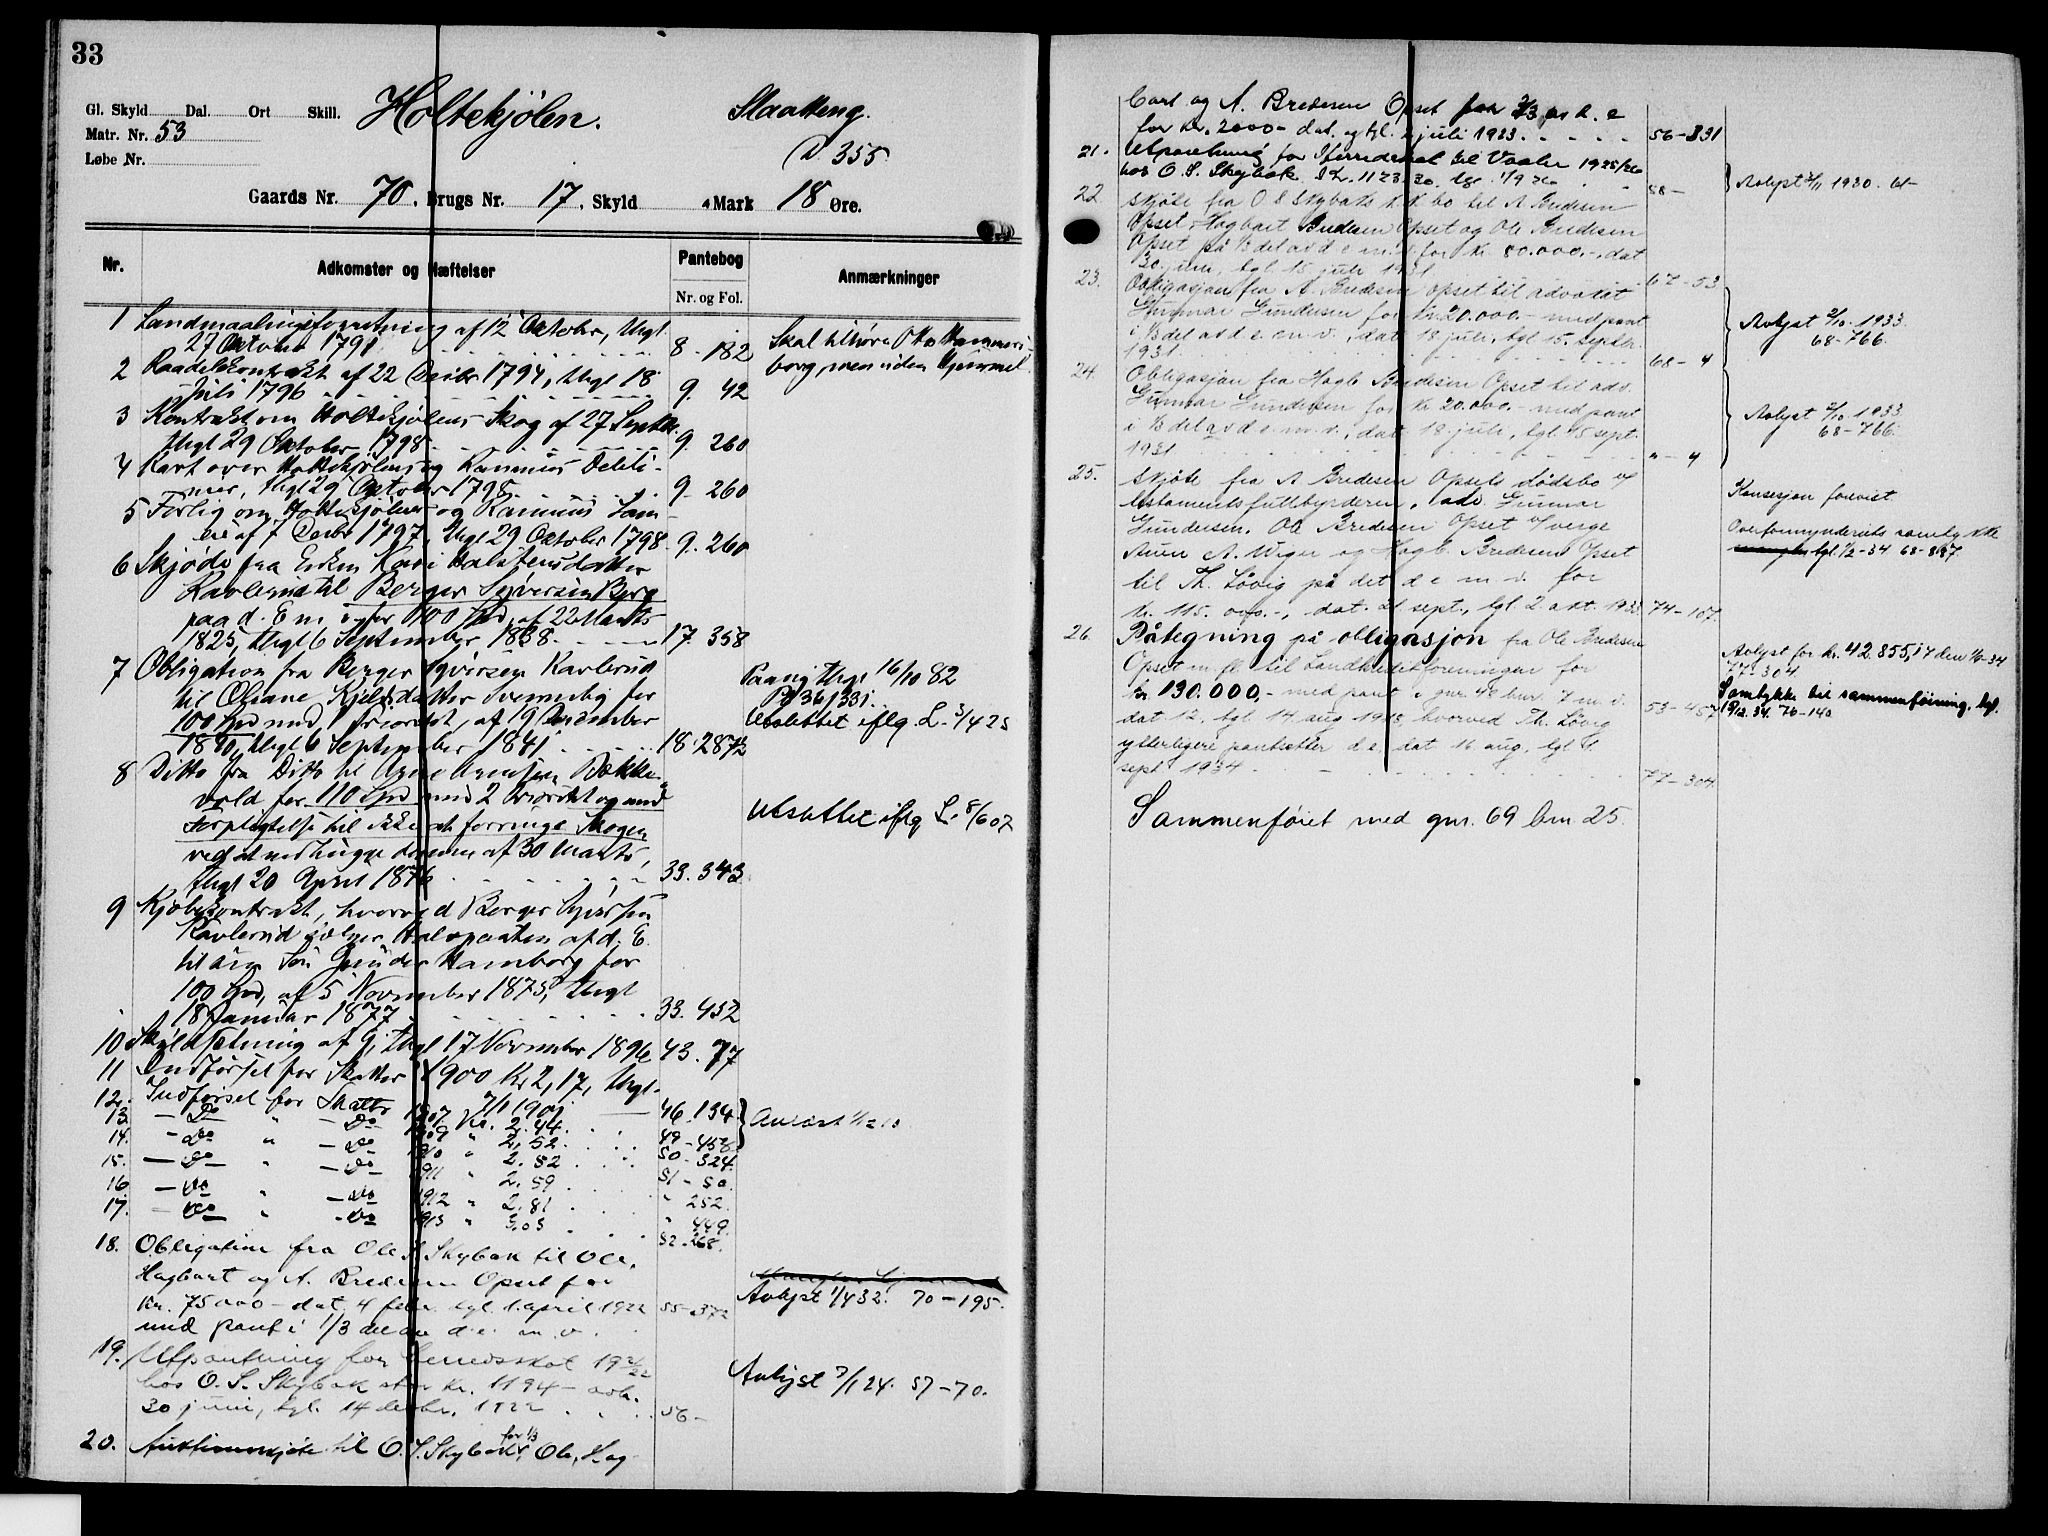 33
Gl. Skyld Dal. Ort Skill. Holtekjølen. Slaatteng.
Matr. Nr. 53
Løbe Nr.
D 355
Gaards Nr. 70, Brugs Nr. 17, Skyld Mark 18 Øre.
Nr. Adkomster og Hæftelser Pantebog Anmærkninger
Nr. og Fol.
1 Landmaalingsforretning af 12 Oktober, thgl.
27 Oktober 1791 8 - 182 Skal tilhøre
2 kontrakt af 22 1794, thgl 18 borg, men uden Hjemmel.
Juli 1796 9. 42
3 Kontrakt om Holtekjølens Skog af 27 Septbr.
thgl 29 Oktober 1798 9. 260
4 Kart over Holtekjølens og Rasmus
thgl 29 Oktober 1798 9. 260
5 Forlig om Holtekjølens og Rasmus
af 7 Decbr 1797, thgl 29 Oktober 1798 9. 260
6 Skjøde fra Enken Kari Halstensdatter
Kavlerud til Berger Syversen Berg
paa d. E m. v. for 100 Spd, af 22 Marts
1825, thgl 6 September 1838 17. 358
7 Obligation fra Berger Syversen Kavlerud Paany thgl 16/10 82
til Oleane Kjelsdatter for B 36/331.
100 Spd med 1 Prioritet, af 19 December Udslettet iflg L. 3/4 25
1840, thgl 6 September 1841 18. 287
8 Ditto fra Ditto til Arne Arnesen Bække-
vold for 110 Spd med 2 Prioritet og med
forpligtelse til ikke at forringe Skogen Udslettet iflg L. 8/6 07
ved at nedhugge denne af 30 Marts,
thgl 20 April 1876 33. 343
9 Kjøbekontrakt, hvorved Berger Syversen
Kavlerud sælger Halvparten af d. E.
til sin Søn Gunder Hamborg for
100 Spd, af 5 November 1875, thgl
18 Januar 1877 33. 452
10 Skyldsætning af 9, thgl 17 November 1896 43. 77
11 Indførsel for Skatter 1900 Kr 2,17, thgl.
7/1 1901 46. 134
12. Indførsel for Skatter 1907 Kr. 2.44 49 - 458
13. — Do " — Do 1909 " 2,52 50 - 324. Anløst
14. — Do " — Do 1910 " 2.52 51 - 50.
15. — Do " — Do 1911 " 2.59 " 252.
16. — Do " — Do 1912 " 2,81 " 449.
17. — Do " — Do 1913 " 3,03 52 - 268.
18. Obligation fra Ole S Skybak til Ole,
Hagbart og A. Bredesen Opset for
Kr. 75000 - dat. 4 febr. tgl. 1. april 1922 55 - 372 Avlyst 1/4 32. 70 - 195.
med pant i 1/3 del av d. e. m. v.
19. Utpantning for herredsskat 1921/22
hos O. S. Skybak stor Kr. 1194 - avh. Avlyst 7/1 24. 57 - 70.
30 juni, tgl. 14 decbr. 1922 56 -
20. Auktionsskjøte til O. S. Skybak for 1/3, Ole, Hag-
bart og A. Bredesen Opset for 2/3 av d. e
for kr. 2000 - dat. og tgl. 2 juli 1923 56 - 331
21. Utpantning for Herredsskat til Vaaler 1925/26
hos O. S. Skybak 58 - Avlyst 1930.
22 Skjøte fra O S Skybaks K.K. bo til A Bredesen
Opset, Hagbart Bredesen Opset og Ole Bredesen
Opset på 1/3 del av d e m. v for kr. 80.000.-, dat
30. juni, tgl. 15 juli 1931 67 - 53
23. Obligasjon fra A. Bredesen Opset til advokat
Gunnar Gundersen for kr. 20.000.- med pant Avlyst 2/10. 1933.
i 1/3 del av d. e. m. v., dat 18 juli, tgl 15. septbr. 68 - 766.
1931 68 - 4
24. Obligasjon fra Hagb. Bredesen Opset til adv.
Gunnar Gundersen for kr 20.000.- med pant Avlyst 2/10. 1933.
i 1/3 del av d e. m. v., dat 18. juli, tgl. 15 sept. 68 - 766.
1931 " - 4
25. Skjøte fra A Bredesen Opsets dødsbo v/
testamentsfullbyrderen, adv. Gunnar Konsesjon forevist
Gundersen, Ole Bredesen Opset v/verge Overformynderiets samtykke
A. Wiger og Hagb. Bredesen Opset tgl. 1/2 - 34 68 - 887.
til Th. Løvig på det d e m v. for
kr. 115.000.-, dat. 21 sept., tgl. 2 okt. 1933 74 - 107.
26. Påtegning på obligasjon fra Ole Bredesen
Opset m. fl. til Landkreditforeningen for Avlyst for kr. 42.855,17 den
kr. 130.000,- med pant i gnr. 48 bnr. 7 m. v. 53 - 457 77 - 304.
dat 12, tgl. 14 aug 1918, hvorved Th. Løvig Samtykke til sammenføining, tgl.
ytterligere pantsetter d. e. dat 16 aug, tgl 4. 19/12. 34. 76 - 140
sept 1934 77 - 304.
Sammenføiet med gnr. 69 bnr 25.